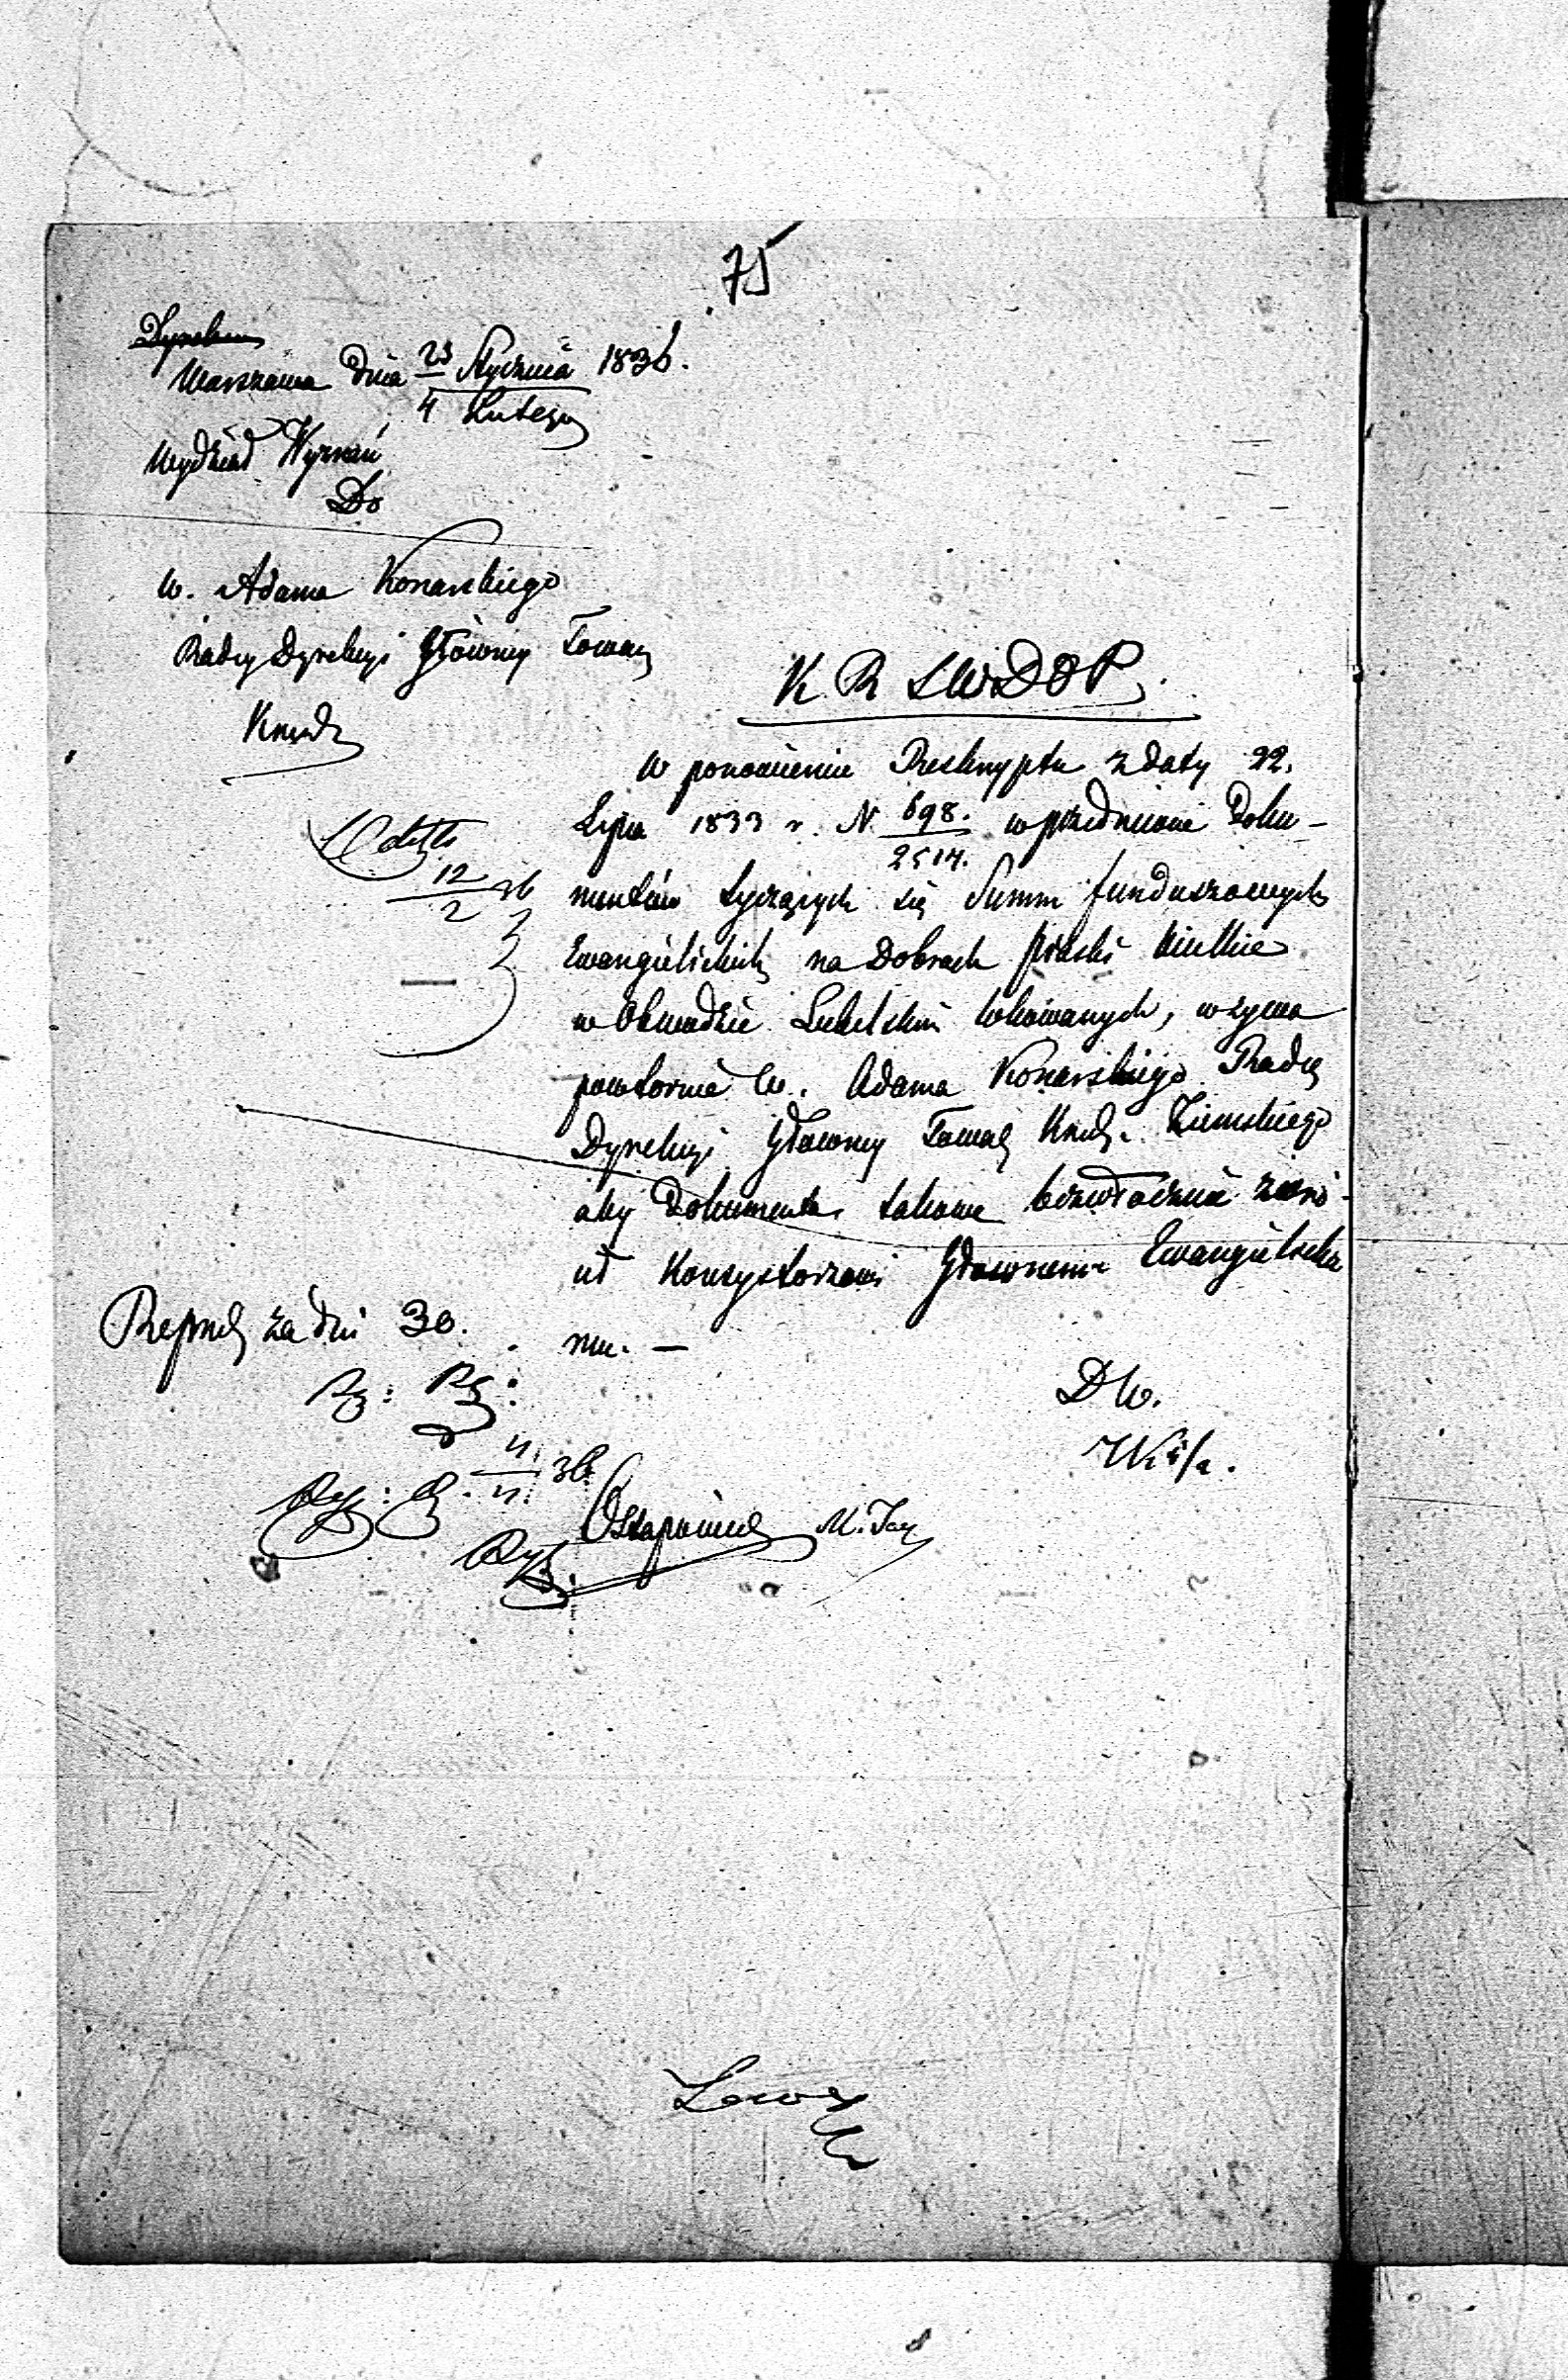 75
Dyrekcu
Warszawa dnia 23 Stycznia 1836.
4 Lutego
Wydział Wyznań
Do
W. Adama Konarskiego
Radcy Dyrekcyi Główney Towarz
Kredt
K R S W D O P.
W ponowieniu Reskryptu z daty 22.
Lipca 1833 r. N. 698. w przedmiocie Doku-
2514.
mentów tyczących się Summ funduszowych
Ewangielickich na Dobrach Piaski Wielkie
w Obwodzie Lubelskim lokowanych, wzywa
powtornie W. Adama Konarskiego Radcę
Dyrekcyi Główney Towarz Kredt. Ziemskiego
aby Dokumenta takowe bezwłocznie zwró-
cił Konsystorzowi Głównemu Ewangielicke
mu. —
12
2 36
Reprod za dni 30.
D W.
4. 36